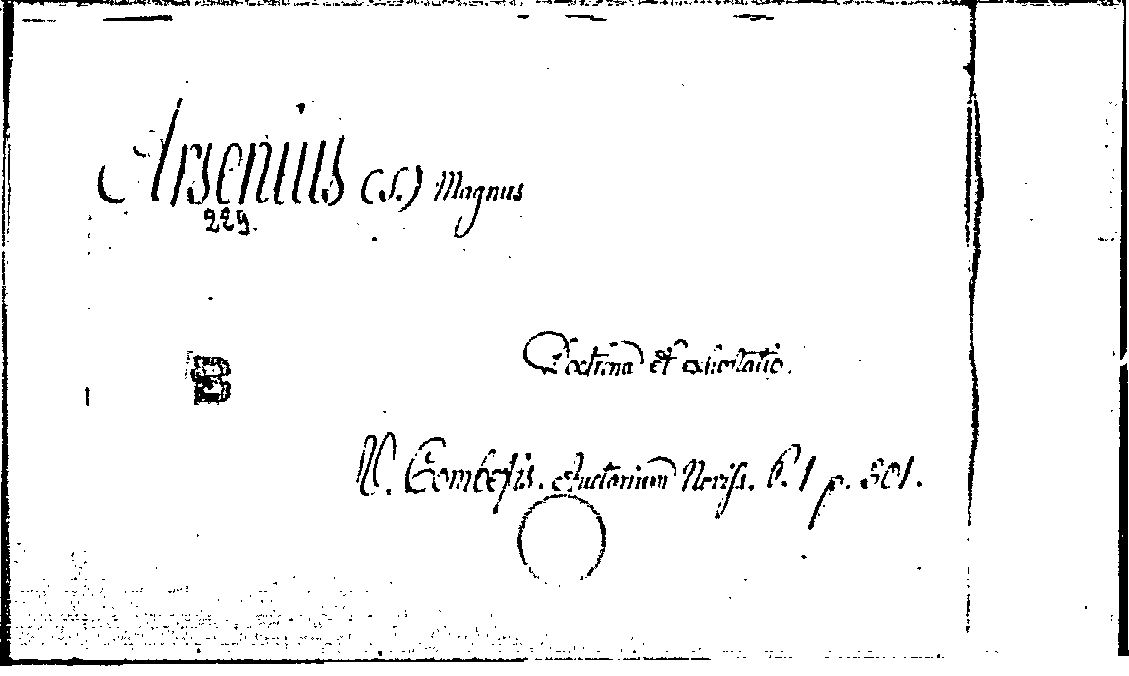 Arsenius (S.) Magnus
229.
Doctrina et exhortatio.
B
V. Combefis. Auctarium Noviss. P. 1 p. 301.